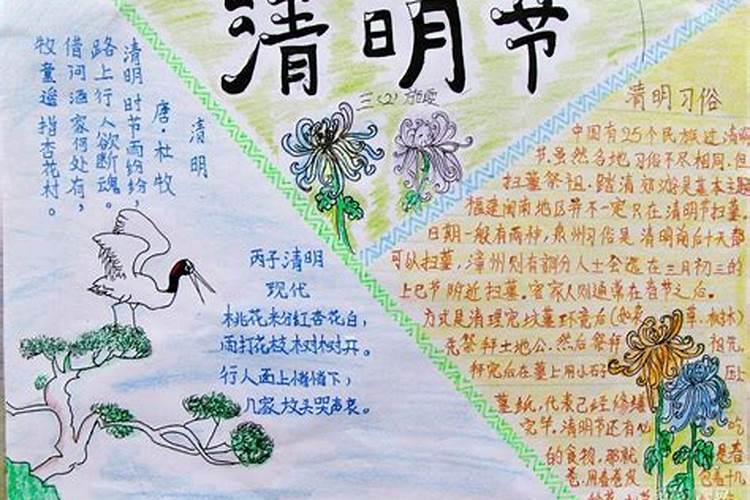 清明节
三(2)
清明
唐·杜牧
清明时节雨纷纷，
路上行人欲断魂。
借问酒家何处有，
牧童遥指杏花村。
丙子清明
现代
桃花粉红杏花白，
雨打花枝树树开。
行人面上悄悄下，
几家坟头哭声哀。
清明习俗
中国有25个民族过清明
节，虽然各地习俗不尽相同，但
扫墓祭祖、踏清郊游是基本主题
福建闽南地区并不一定只在清明节扫墓，
日期一般有两种，泉州习俗是清明前后十天都
可以扫墓，漳州则有部分人士会选在三月初三的
上巳节附近扫墓。客家人则通常在春节之后。
方式是清理完坟墓环境后(如杂草、树木)
先祭拜土地公，然后祭拜祖先，
拜完后在墓上用小石 压上
墓纸，代表已经修缮
完毕。清明节还有 的
的食物，那就 是春
卷，用春卷皮 包着十几